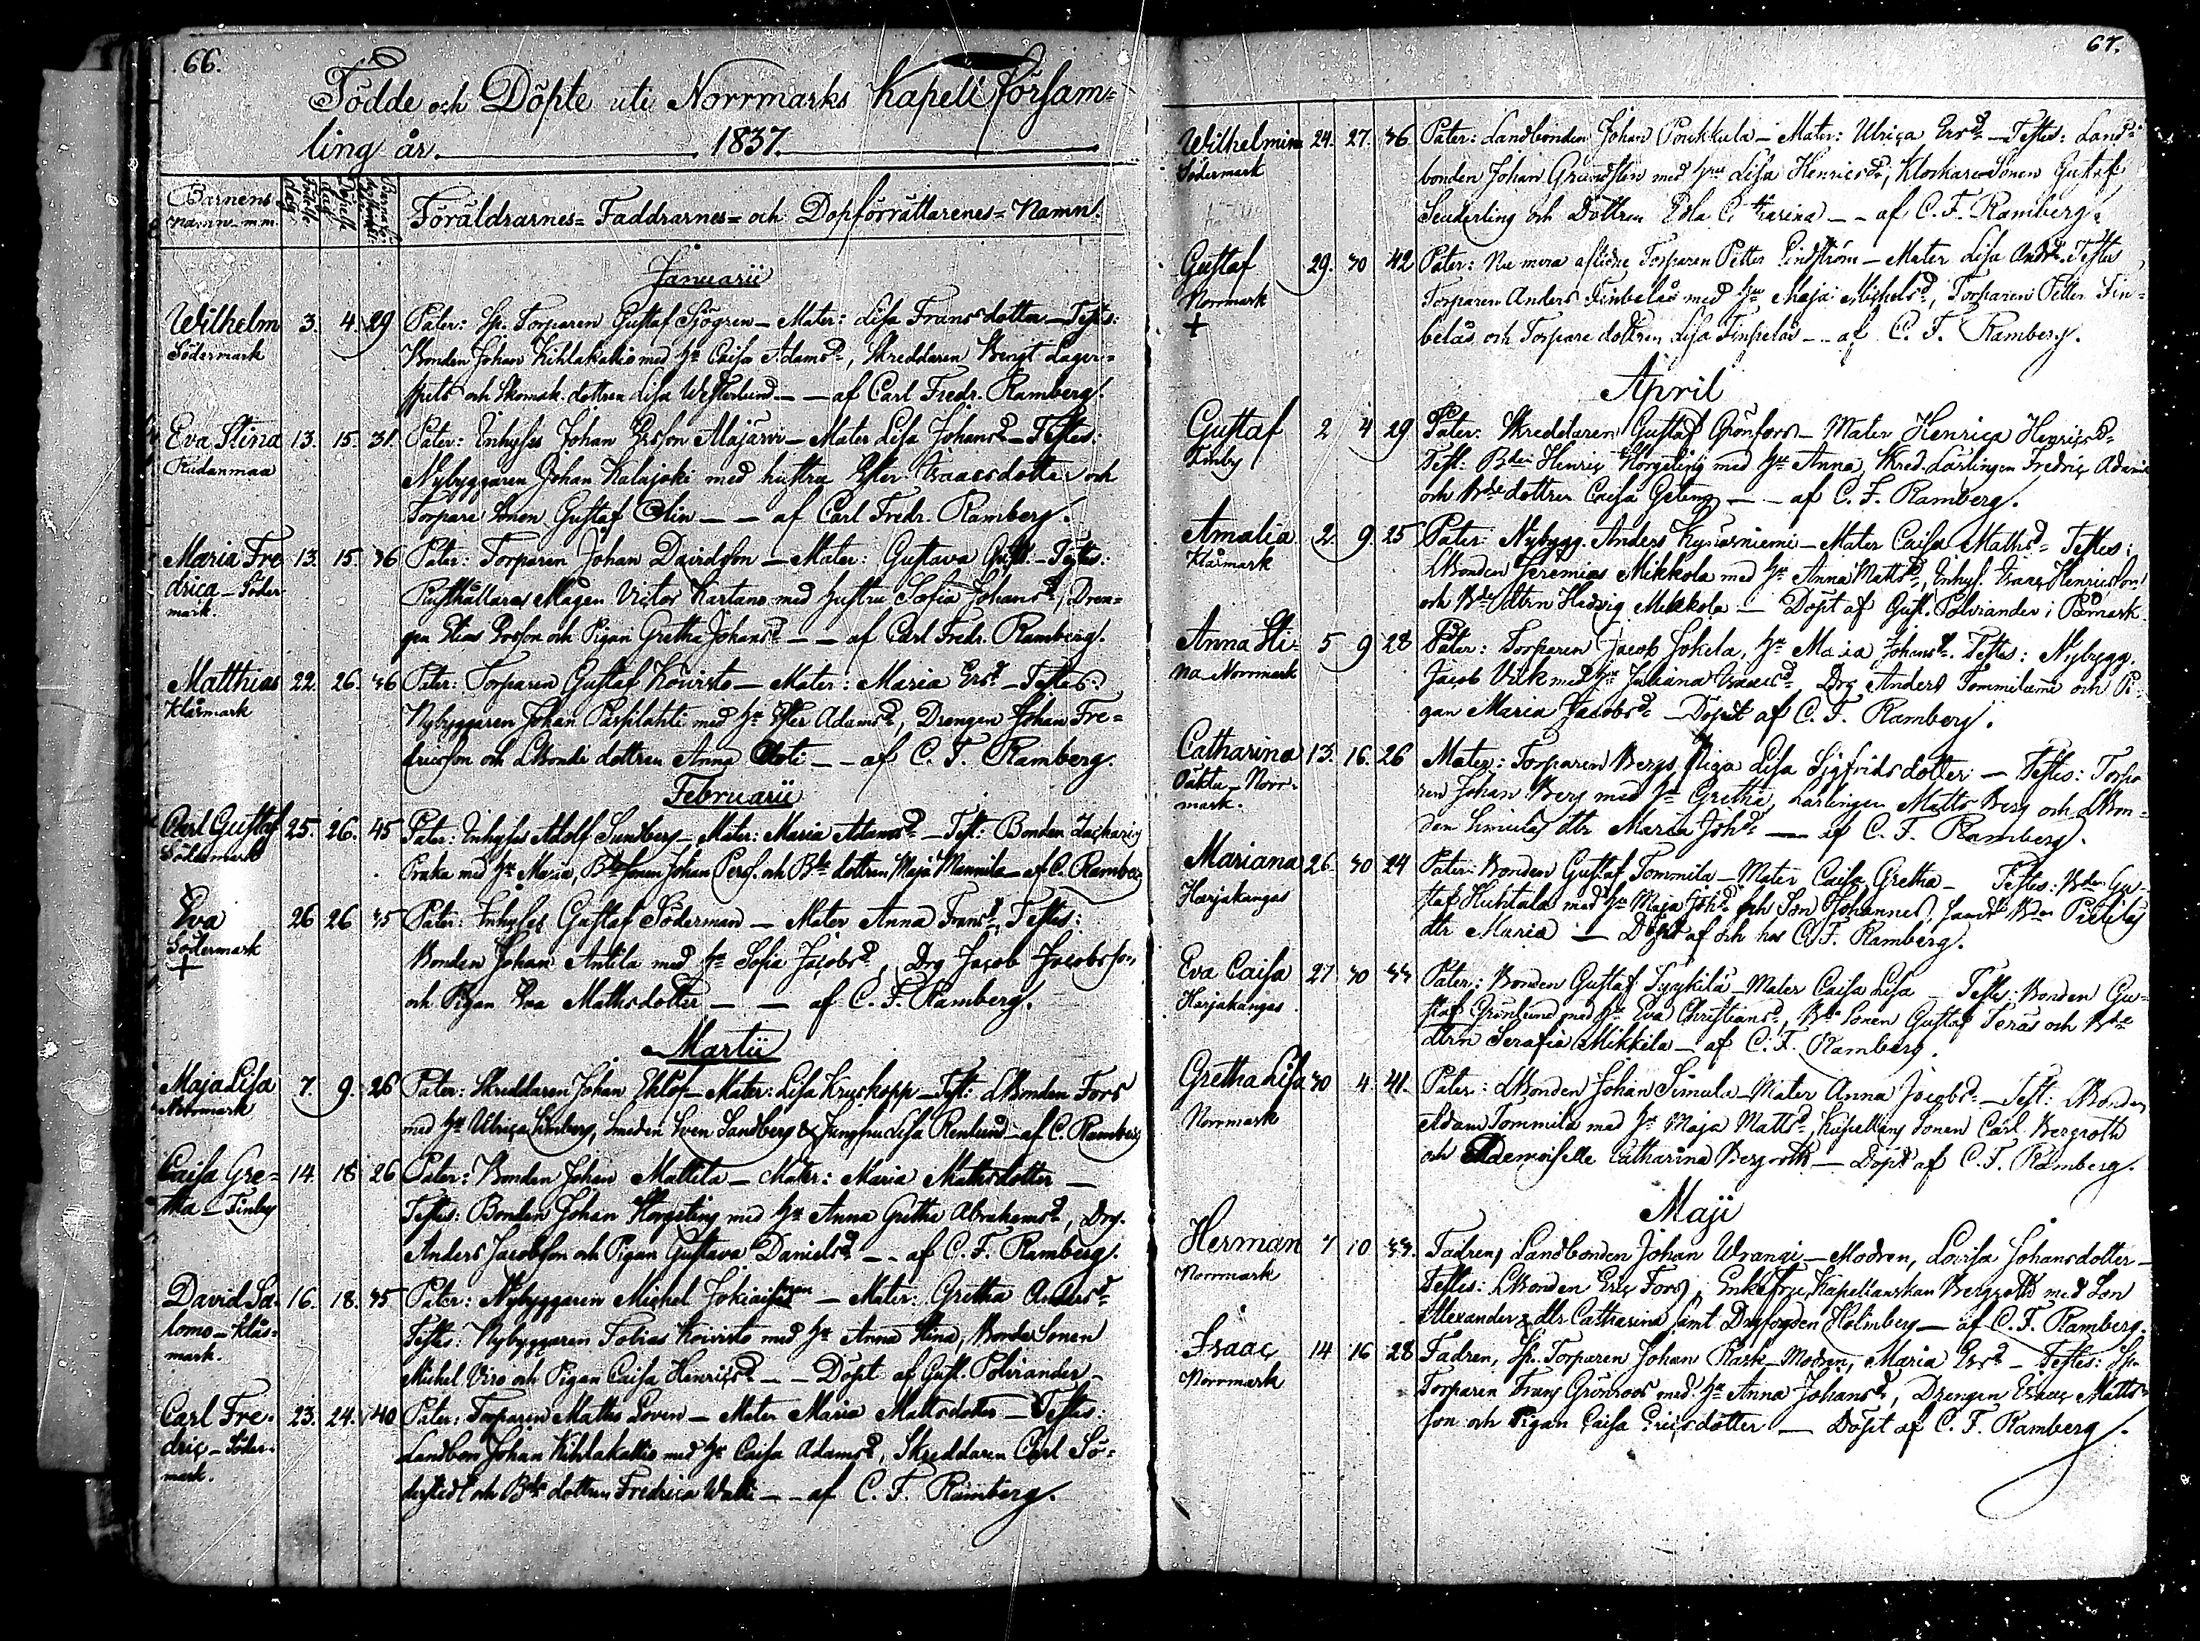 66.
Födde och Döpte uti Norrmarks Kapell församling
ling år 1837.
Barnens Namn m.m.
Föräldrarnes= Faddrarnes= och Dopförrättarenes= Namn.
Januarii
Wilhelm 3. 4 29 Pater: Sp. Torparen Gustaf Sjögren – Mater: Lisa Fransdotter – Testes:
Södermark Bonden Johan Kihlakallio med hu Caisa Adamsdr, Skreddaren Bengt Lager=
spets och Skomak. dottren Lisa Westerlund – – af Carl Fredr. Ramberg.
Eva Stina 13. 15. 31. Pater: Inhyses Johan Ersson Majärvi – Mater Lisa Johansdr – Testes:
Nybyggaren Johan Kalajoki med hustru Ester Isaacsdotter och
Torpare Sonen Gustaf Olin – – af Carl Fredr. Ramberg.
Maria Fre 13. 15. 36 Pater: Torparen Johan Davidson – Mater: Gustava Gust. – Testes:
drica – Söder Rusthållare Magen Victor Kartano med hustru Sofia Johansdr, Dren=
mark. gen Elias och Pigan Gretha Johansdr – – af Carl Fredr. Ramberg.
Matthias 22. 26. 36 Pater: Torparen Gustaf Koivisto – Mater: Maria Ersdr – Testes:
Klåsmark Nybyggaren Johan Paskilahti med hu Ester Adamsdr, Drengen Johan Fre=
dricsson och LBonde dottren Anna – – af C. F. Ramberg.
Februarii
Carl Gustaf 25. 26. 45 Pater: Inhyses Adolf Sundberg – Mater: Maria Adamsdr – Test: Bonden Zacharias
Södermark Praka med hu Maria, Bde sonen Johan och Bde dottren Maja Mannila – af C. Ramberg
Eva 26 26 35 Pater: Inhyses Gustaf Söderman – Mater Anna Fransdr, Testes:
Södermark Bonden Johan Antila med hu Sofia Jacobsdr, Drg Jacob Jacobsson
+ och Pigan Eva Mathsdotter – – af C. F. Ramberg.
Martii
Maja Lisa 7. 9. 26 Pater: Skreddaren Johan Eklöf – Mater: Lisa Kruskopp – Test: LBonden Fors
Norrmark med hu Ulrica Limberg, Smeden Sven Sandberg & Jungfru Lisa Renlund – af C. Ramberg
Caisa Gre= 14. 18 26 Pater: Bonden Johan Mattila – Mater: Maria Mathsdotter –
tha – Finby Testes: Bonden Johan Norgeling med hu Anna Gretha Abrahamsdr, Drg.
Anders Jacobsson och Pigan Gustava Danielsdr – – af C. F. Ramberg.
David Sa= 16. 18. 35 Pater: Nybyggaren Michel – Mater: Gretha Andersdr
lomo – Klås= Testes: Nybyggaren Tobias Koivisto med hu Anna Stina, Bonde Sonen
mark. Michel Viro och Pigan Caisa Henricsdr – – Döpt af Gust. Polviander –
Carl Fre= 23. 24. 40 Pater: Torparen Maths Loven – Mater Maria Mattsdotter – Testes:
dric – Söder= Landbon Johan Kihlakallio med hu Caisa Adamsdr, Skreddaren Carl Sö=
mark. derstedt och Bde dottren Fredrica Walli – – af C. F. Ramberg.
67.
Wilhelmina 24. 27. 36 Pater: Landbonden Johan Poukkula – Mater: Ulrica Ersdr – Testes: Land=
Södermark bonden Johan Grundsten med hru Lisa Henricsdr, Klockare Sonen Gustaf
Seuderling och Dottren Eva Catharina – – af C. F. Ramberg.
Gustaf 29. 30 42 Pater: Nu mera aflidne Torparen Petter Lindström – Mater Lisa Andr. Testes
Norrmark Torparen Anders Finpelas med hru Maja Michelsdr, Torparen Petter Fin=
+ belas och Torpare dottren Lisa Finpelas – – af C. F. Ramberg.
April
Gustaf 2 4 29 Pater: Skreddaren Gustaf Grönfors – Mater Henrica Henricsdr
Finby Test: Bden Henric Norgeling med hu Anna, Skred. Lärlingen Fredric
och Bde dottren Caisa Geting – – af C. F. Ramberg.
Amalia 2. 9. 25 Pater: Nybygg. Anders – Mater Caisa Mathsdr Testes:
Klåsmark LBonden Jeremias Mikkola med hu Anna Mattsdr, Inhys. Isaac Henricsson
och Bde dttrn Hedvig Mikkola – Döpt af Gust. Polviander i Påmark.
Anna Sti= 5 9 28 Pater: Torparen Jacob Jokela, hu Maria Johansdr. Testes: Nybygg.
na Norrmark Jacob Virk med hu Juliana Isaacsdr Drg Anders Tommilanni och Pi=
gan Maria Jacobsdr – Döpt af C. F. Ramberg.
Catharina 13. 16. 26 Mater: Torparen Bergs Piga Lisa Sigfridsdotter – Testes: Torpa
Oäkta – Norr= ren Johan Berg med hu Gretha, Lärlingen Matts Berg och LBon=
mark. den Simulas dtr Maria Johdr – af C. F. Ramberg.
Mariana 26 30 24 Pater: Bonden Gustaf Tommila – Mater Caisa Gretha – Testes: Bden Gu=
Harjakangas staf Huhtala med hu Maja Johdr och Son Johannes, samt Bden Pietilas
dtr Maria – Döpt af och hos C. F. Ramberg.
Eva Caisa 27 30 33 Pater: Bonden Gustaf Syykilä – Mater Caisa Lisa – Testes: Bonden Gu=
Harjakangas staf Grönlund med hu Eva Christiansdr, Bde Sonen Gustaf Teräs och Bde
dttrn Serafia Mikkila – af C. F. Ramberg.
Gretha Lisa 30 4 41. Pater: LBonden Johan Simula – Mater Anna Jacobsdr – Test: LBonden
Norrmark Adam Tommila med hu Maja Mattsdr, Kapellans Sonen Carl Bergroth
och Demoiselle Catharina Bergroth – Döpt af C. F. Ramberg.
Maji
Herman 7 10 33. Fadren, Landbonden Johan Wrangi – Modren, Lovisa Johansdotter –
Norrmark Testes: LBonden Eric Fors, Enkefru Kapellanskan Bergroth med Son
Alexander & dtr Catharina samt Drfogden Holmberg – af C. F. Ramberg.
Isaac 14 16 28 Fadren, Sp. Torparen Johan Rask – Modren, Maria Ersdr – Testes: Sp.
Norrmark Torparen Frans Grönroos med hu Anna Johansdr, Drengen Isaac Matts=
son och Pigan Caisa Ericsdotter – Döpt af C. F. Ramberg.